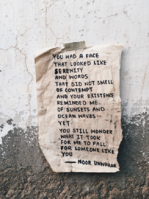 YOU HAD A FACE
THAT LOOKED LIKE
SERENITY
AND WORDS
THAT DID NOT SMELL
OF CONTEMPT
AND YOUR EXISTENCE
REMINDED ME
OF SUNSETS AND
OCEAN WAVES
YET
YOU STILL WONDER
WHAT IT TOOK
FOR ME TO FALL
FOR SOMEONE LIKE
YOU
— NOOR UNNAHAR